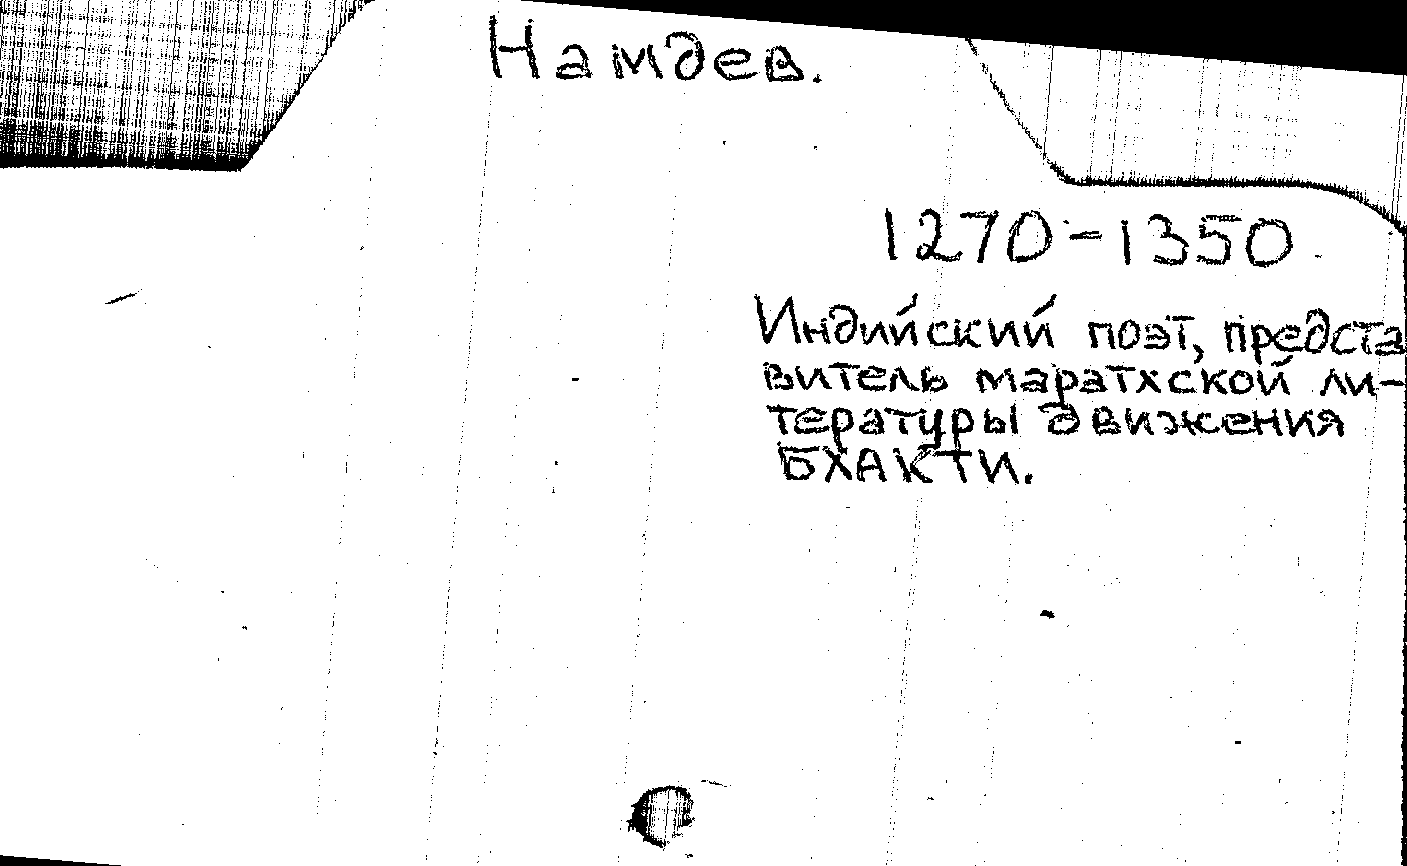 Намдев.
1270-1350.
Индийский поэт, предста
витель маратхской ли-
тературы движения
БХАКТИ.